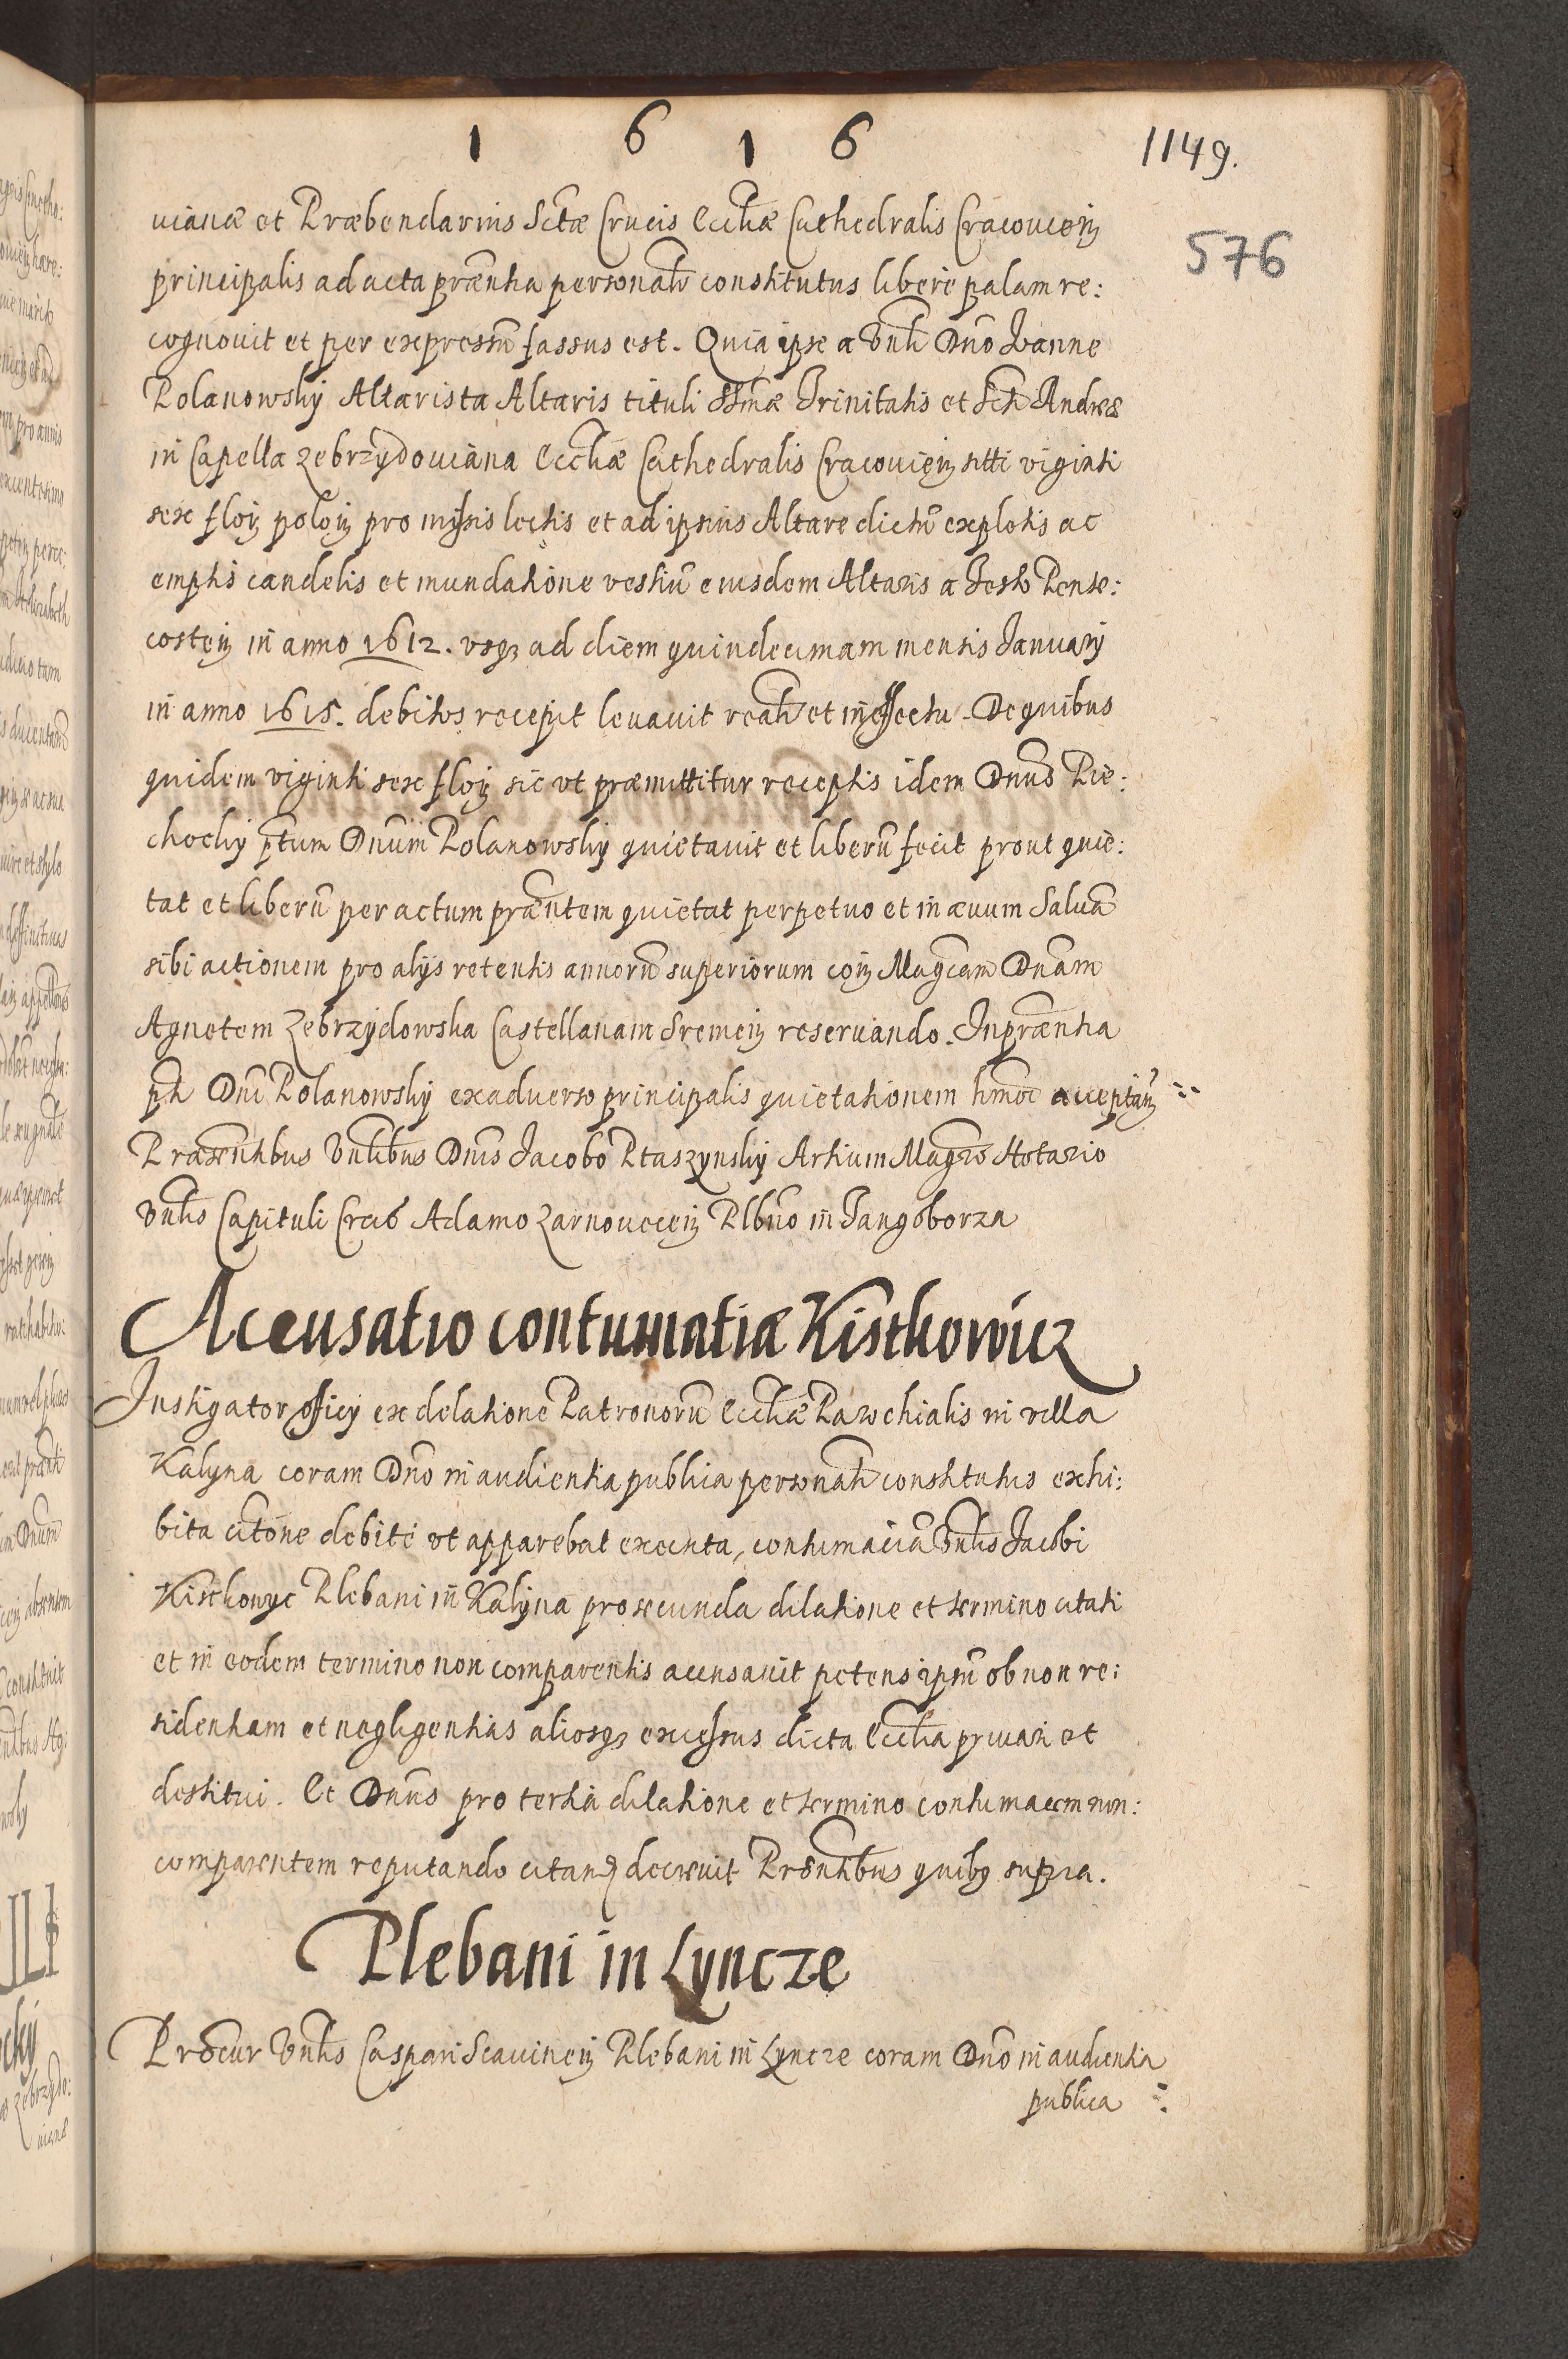 1 6 1 6
1149.
576
uianæ et Præbendarius Sctæ Crucis Ecclæ Cathedralis Cracouien
principalis ad acta præntia personalr constitutus libere palam re:
cognouit et per expressũ fassus est. Quia ipse a Vnli Dno Ioanne
Polanowsky Altarista Altaris tituli SSmæ Trinitatis et Scti Andreæ
in Capella Zebrzydouiana Ecclæ Cathedralis Cracouien sitti viginti
sex floň poloň pro missis lectis et ad ipsius Altare dictũ expletis ac
emptis candelis et mundatione vestiũ eiusdem Altaris a Festo Pente:
costen in anno 1612. vsqꝫ ad diem quindecimam mensis Ianuarij
in anno 1615. debitos recepit leuauit realr et in effectu. De quibus
quidem viginti sex floň sic vt præmittitur receptis idem Dnus Pie:
chocky ptum Dnum Polanowsky quietauit et liberũ fecit prout quie:
tat et liberũ per actum præntem quietat perpetuo et in æuum Saluã
sibi actionem pro alijs retentis annorũ superiorum con Magcam Dnam
Agnetem Zebrzydowska Castellanam Sremen reseruando. In præntia
pti Dni Polanowsky ex aduerso principalis quietationem hmoi acceptan
Præsentibus Vnlibus Dnis Iacobo Ptaszynsky Artium Magro Notario
Vnlis Capituli Crac Adamo Zarnouecen Plbno in Tangoborza
Accusatio contumatiæ Kistkowicz
Instigator officij ex delatione Patronorũ Ecclæ Parochialis in villa
Kalyna coram Dno in audientia publica personalr constitutus exhi:
bita citone debite vt apparebat executa, contumaciã Vnlis Iacobi
Kistkowyc Plebani in Kalyna pro secunda dilatione et termino citati
et in eodem termino non comparentis accusauit petens ipsũ ob non re:
sidentiam et negligentias aliosqꝫ excessus dicta Ecclia priuari et
destitui. Et Dnus pro tertia dilatione et termino contumacem non:
comparentem reputando citand decreuit Præntibus quibꝫ supra.
Plebani in Lyncze
Procur Vnlis Caspari Scauinen Plebani in Lyncze coram Dno in audientia
publica